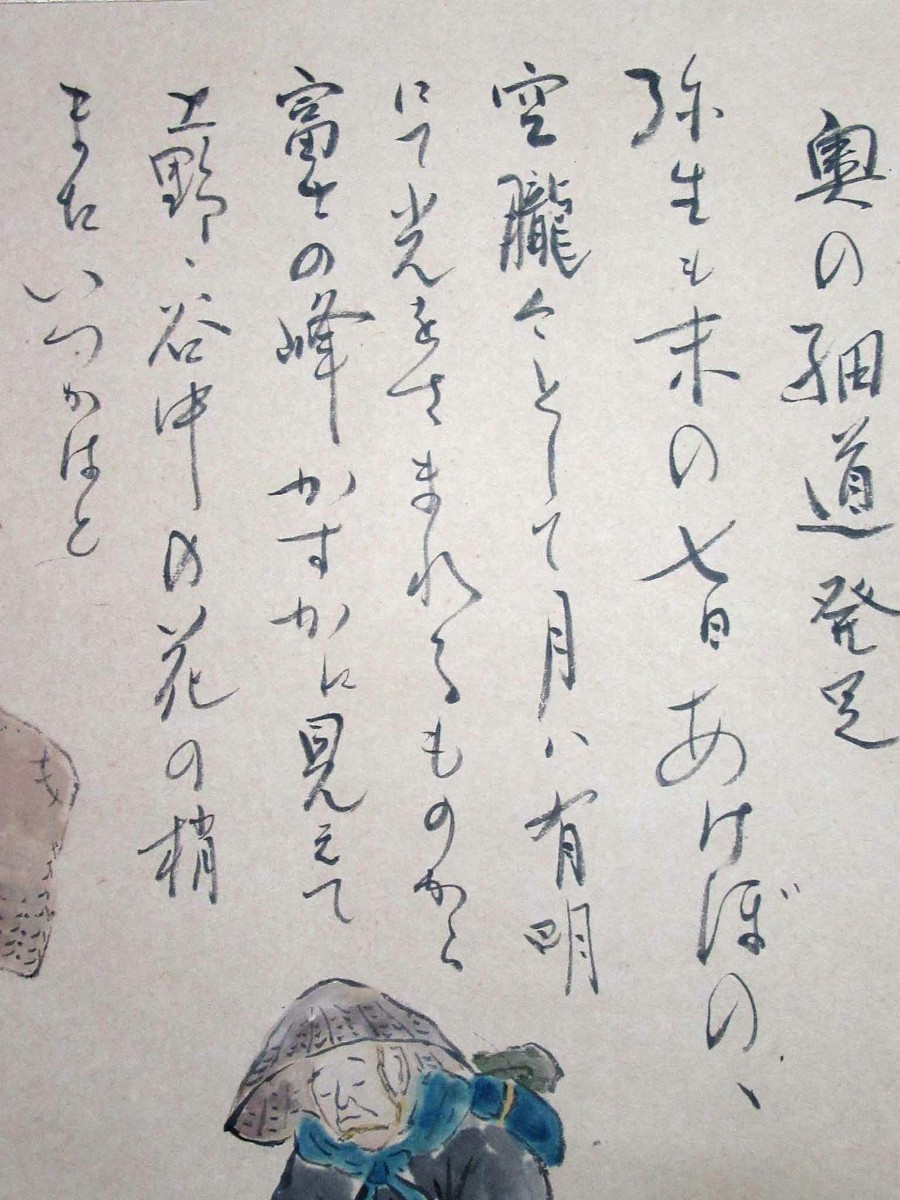 奥の細道 発足
弥生も末の七日あけぼの、
空朧々として月ハ有明
にて光をさまれるものから
富士の峰かすかに見えて
上野、谷中の花の梢
またいつかはと